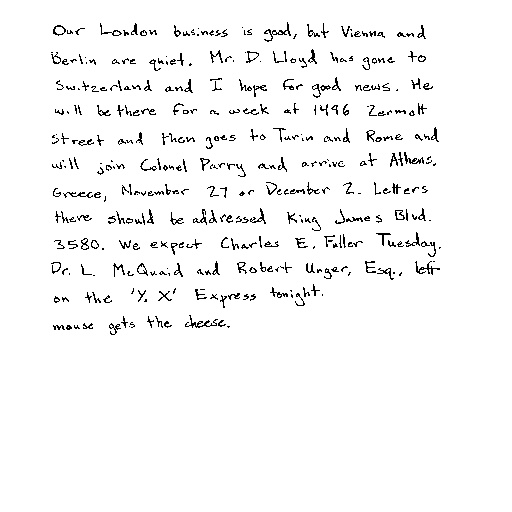 Our London business is good, but Vienna and
Berlin are quiet. Mr. D. Lloyd has gone to
Switzerland and I hope for good news. He
will be there for a week at 1496 Zermott
Street and then goes to Turin and Rome and
will join Colonel Parry and arrive at Athens,
Greece, November 27 or December 2. Letters
there should be addressed King James Blvd.
3580. We expect Charles E. Fuller Tuesday.
Dr. L. McQuaid and Robert Unger, Esq., left
on the '% X' Express tonight.
mouse gets the cheese.